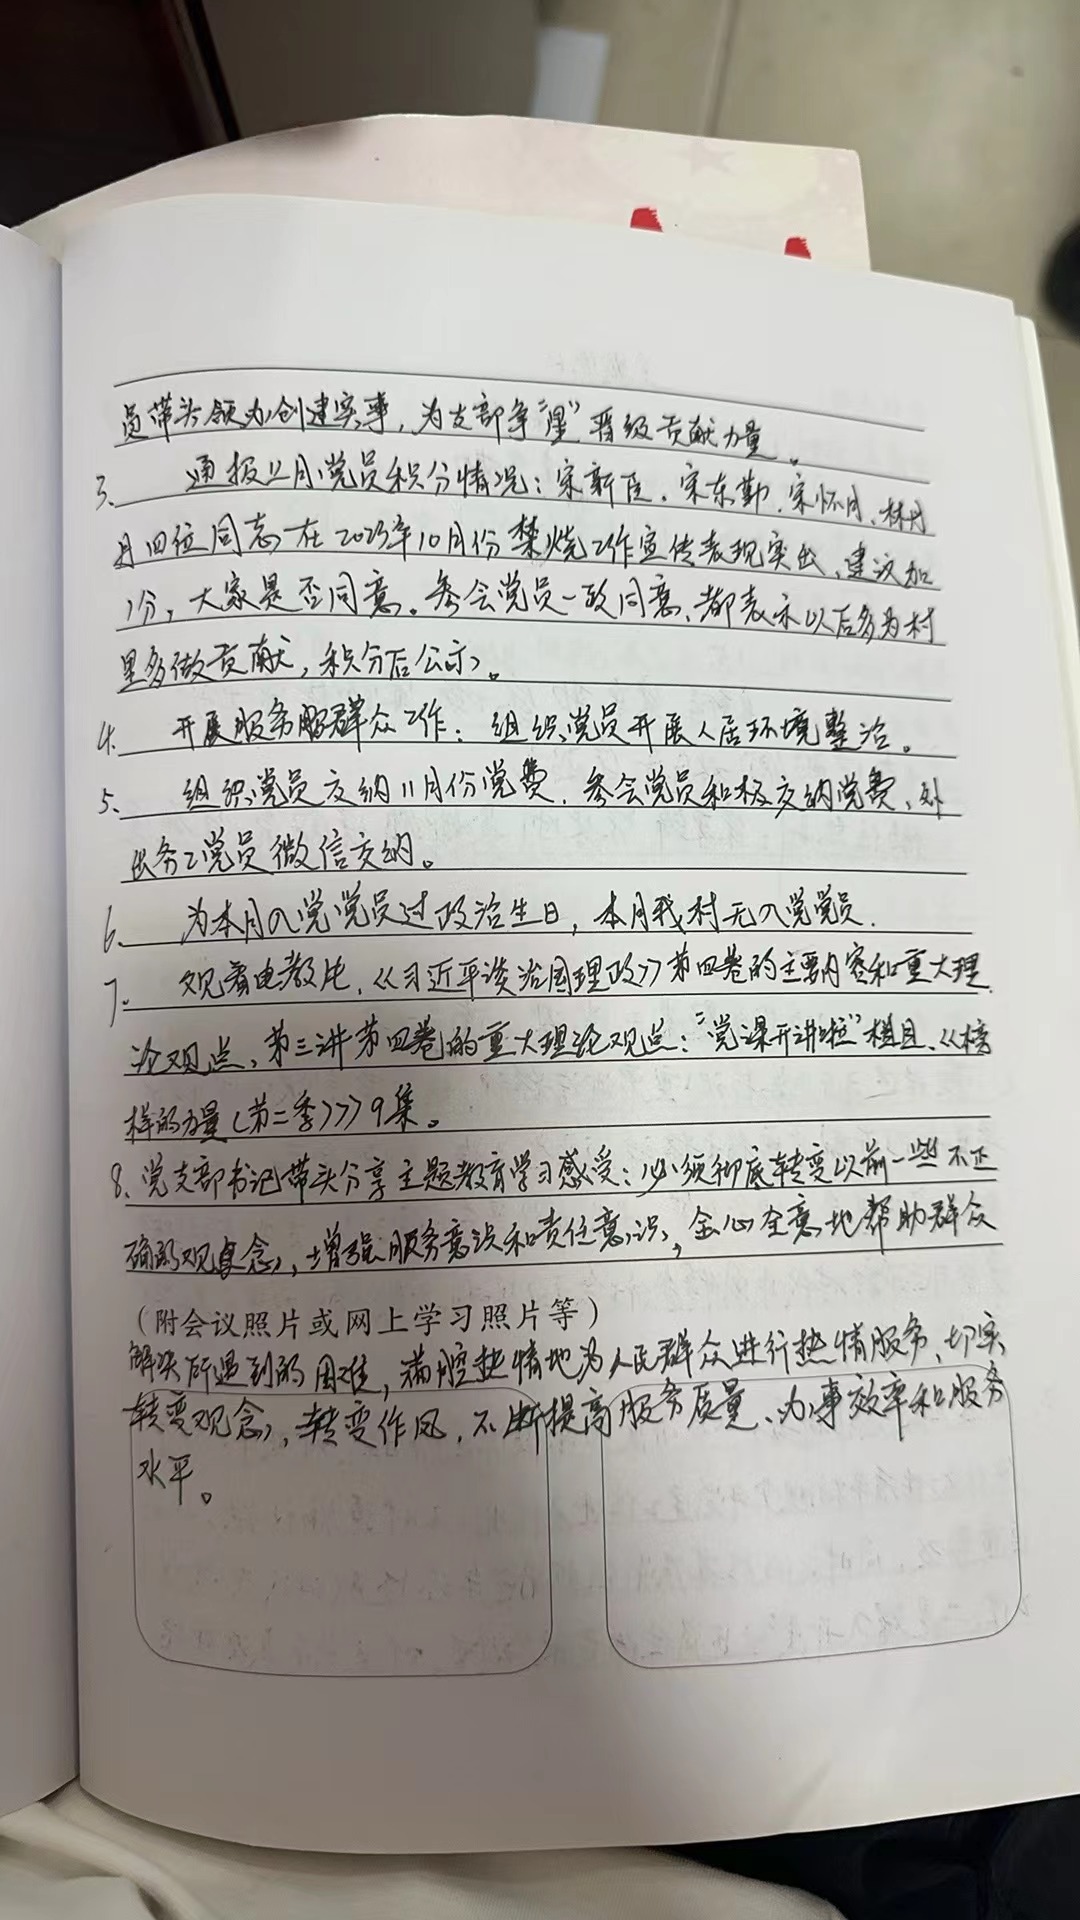 员带头领办创建实事，为支部争“星”晋级贡献力量。
3、通报11月党员积分情况：宋新臣、宋东勤、宋怀月、林丹
丹四位同志在2023年10月份禁烧工作宣传表现突出、建议加
1分，大家是否同意。参会党员一致同意、都表示以后多为村
里多做贡献，积分后公示。
4、开展服务服群众工作：组织党员开展人居环境整治。
5、组织党员交纳11月份党费，参会党员积极交纳党费、外
出务工党员微信交纳。
6、为本月入党党员过政治生日，本月我村无入党党员.
7、观看电教片，《习近平谈治国理政》第四卷的主要内容和重大理
论观点，第三讲第四卷的重大理论观点：“党课开讲啦”栏目、《榜
样的力量(第二季)》9集。
8、党支部书记带头分享主题教育学习感受：必须彻底转变以前一些不正
确的观念，增强服务意识和责任意识，全心全意地帮助群众
（附会议照片或网上学习照片等）
解决所遇到的困难，满腔热情地为人民群众进行热情服务、切实
转变观念，转变作风，不断提高服务质量、办事效率和服务
水平。